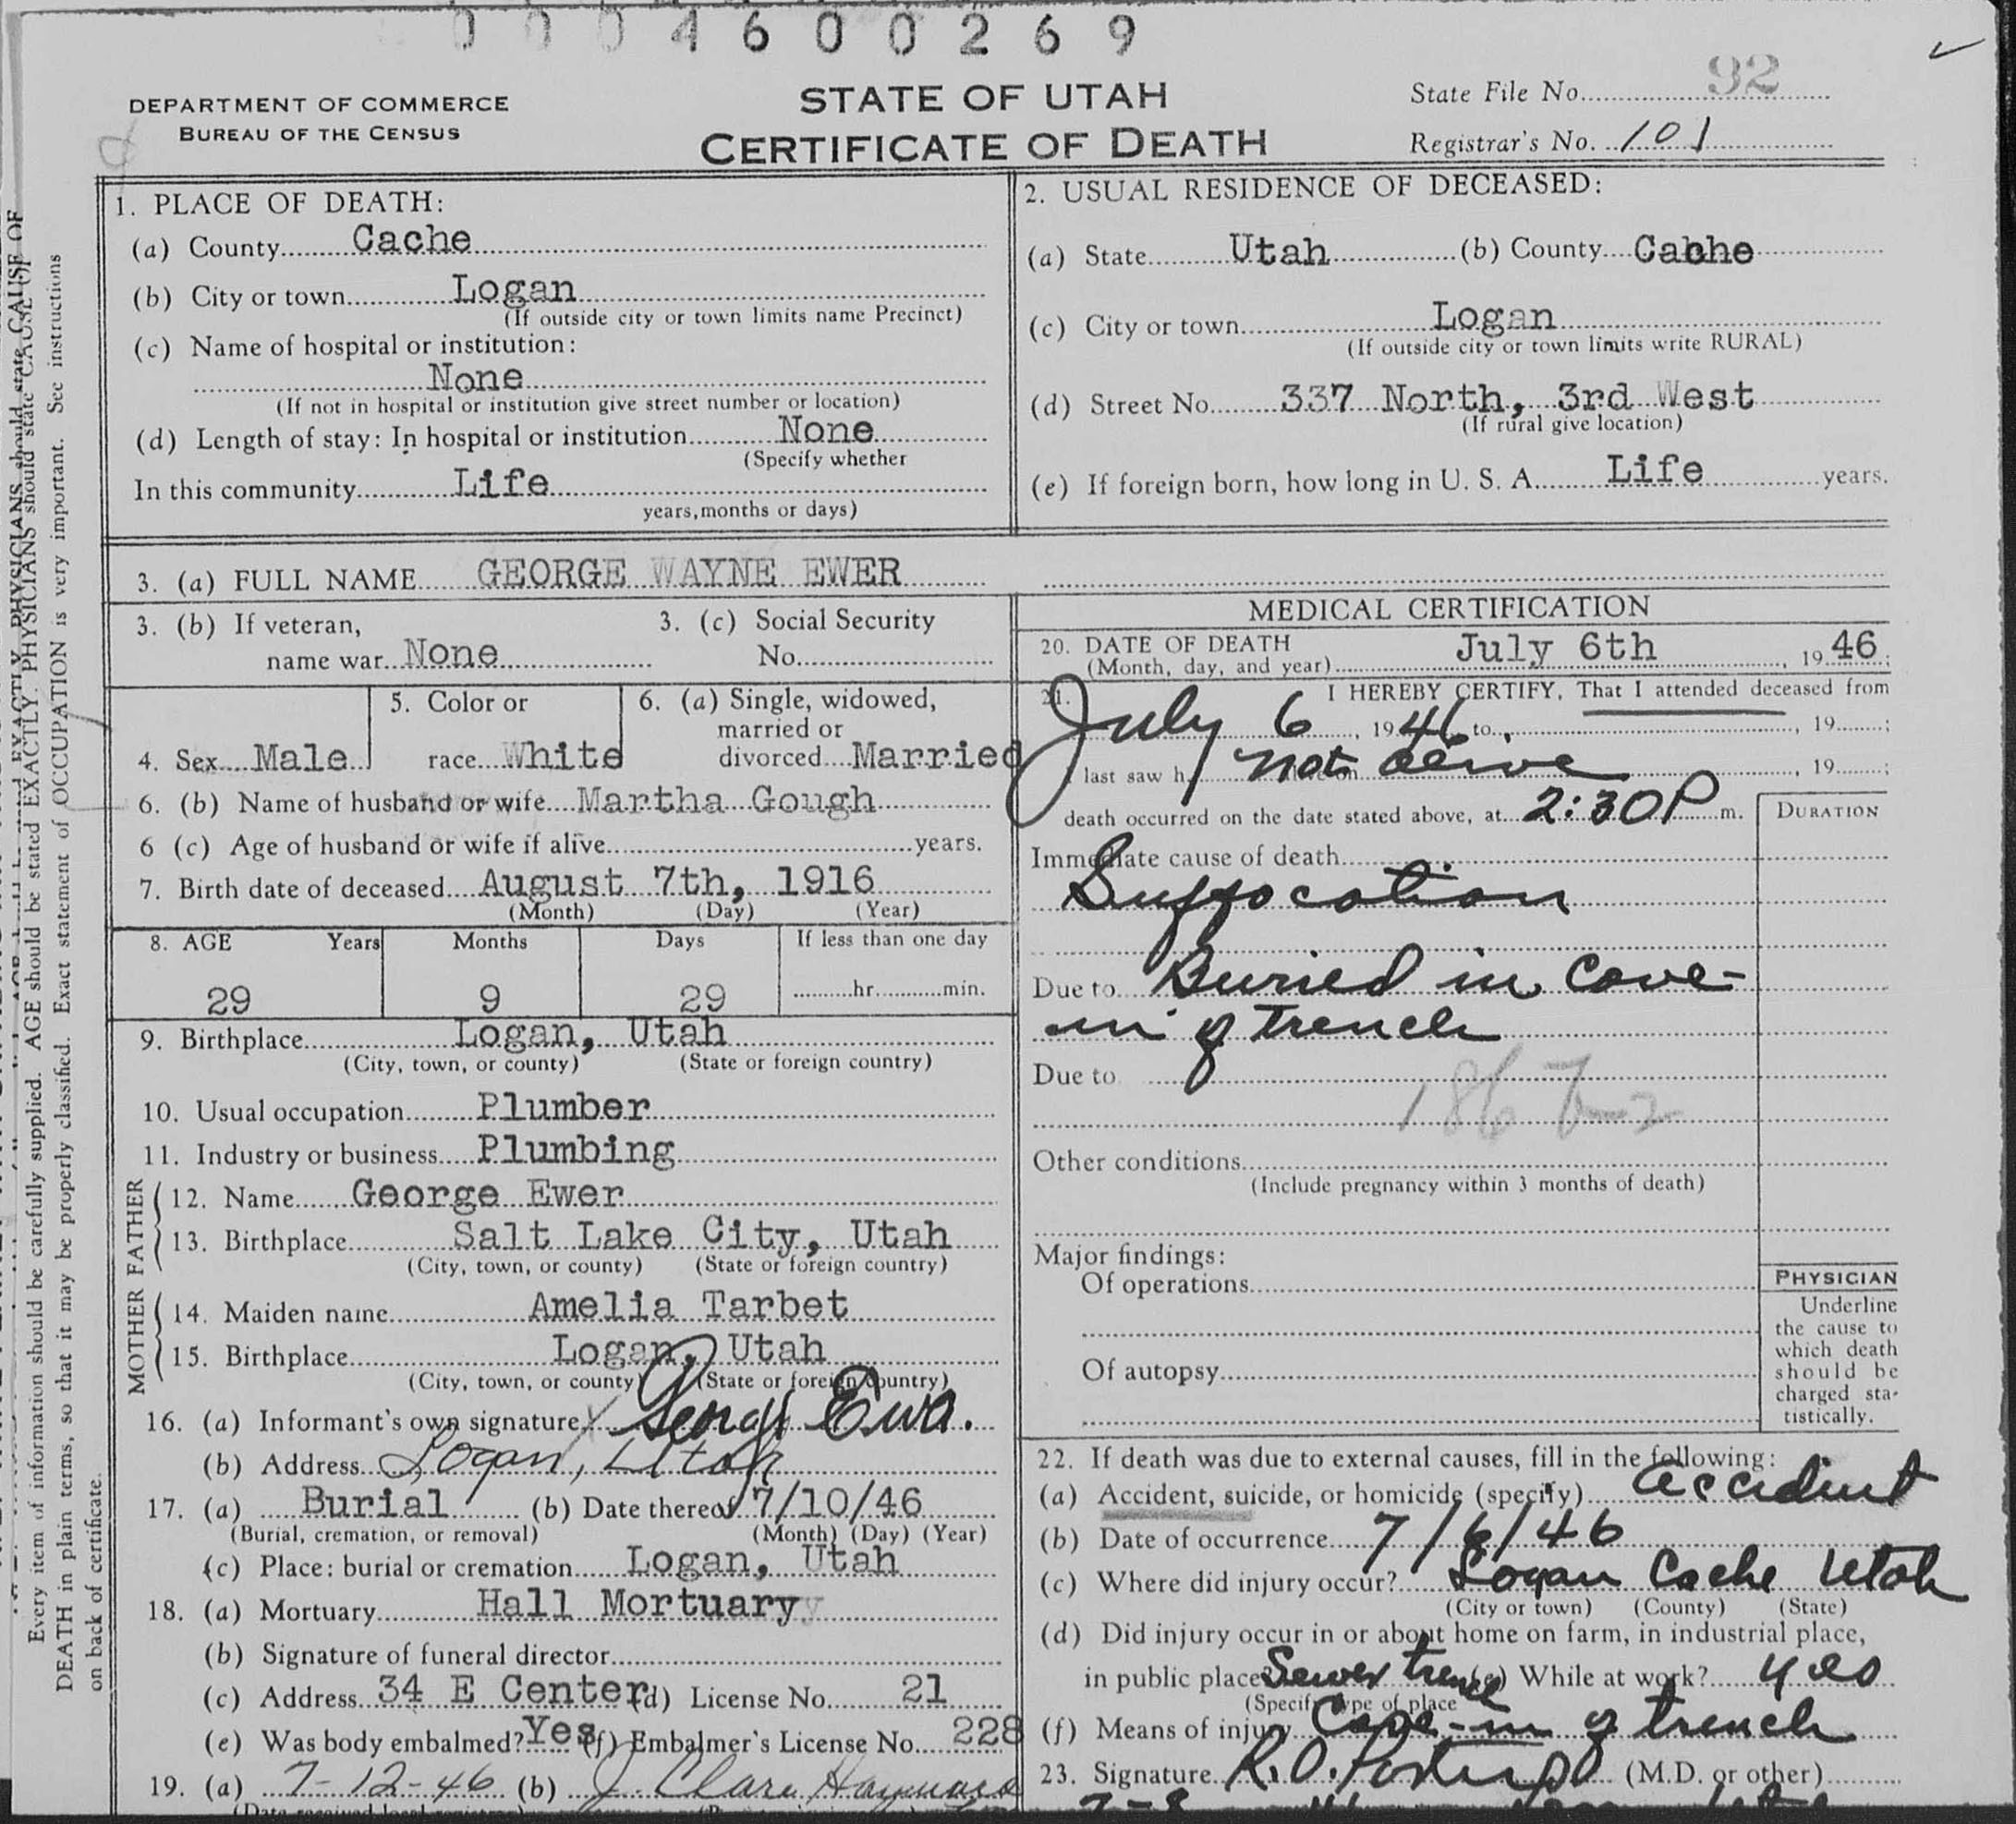 0 0 0 4 6 0 0 2 6 9
DEPARTMENT OF COMMERCE
BUREAU OF THE CENSUS
STATE OF UTAH
CERTIFICATE OF DEATH
State File No. 92
Registrar's No. 101
1. PLACE OF DEATH:
(a) County Cache
(b) City or town Logan
(If outside city or town limits name Precinct)
(c) Name of hospital or institution:
None
(If not in hospital or institution give street number or location)
(d) Length of stay: In hospital or institution None
(Specify whether
In this community Life
years, months or days)
2. USUAL RESIDENCE OF DECEASED:
(a) State Utah (b) County Cache
(c) City or town Logan
(If outside city or town limits write RURAL)
(d) Street No. 337 North, 3rd West
(If rural give location)
(e) If foreign born, how long in U. S. A. Life years.
3. (a) FULL NAME GEORGE WAYNE EWER
3. (b) If veteran,
name war None
3. (c) Social Security
No.
4. Sex Male
5. Color or
race White
6. (a) Single, widowed,
married or
divorced Married
6. (b) Name of husband or wife Martha Gough
6 (c) Age of husband or wife if alive years.
7. Birth date of deceased August 7th, 1916
(Month) (Day) (Year)
8. AGE Years Months Days If less than one day
29 9 29 hr. min.
9. Birthplace Logan, Utah
(City, town, or county) (State or foreign country)
10. Usual occupation Plumber
11. Industry or business Plumbing
FATHER
12. Name George Ewer
13. Birthplace Salt Lake City, Utah
(City, town, or county) (State or foreign country)
MOTHER
14. Maiden name Amelia Tarbet
15. Birthplace Logan, Utah
(City, town, or county) (State or foreign country)
16. (a) Informant's own signature X George Ewer.
(b) Address Logan, Utah
17. (a) Burial (b) Date thereof 7/10/46
(Burial, cremation, or removal) (Month) (Day) (Year)
(c) Place: burial or cremation Logan, Utah
18. (a) Mortuary Hall Mortuary
(b) Signature of funeral director
(c) Address 34 E Center (d) License No. 21
(e) Was body embalmed? Yes (f) Embalmer's License No. 228
19. (a) 7-12-46 (b) J. Clare Hayward
MEDICAL CERTIFICATION
20. DATE OF DEATH
(Month, day, and year) July 6th, 1946;
21. I HEREBY CERTIFY, That I attended deceased from
July 6, 1946 to , 19 ;
last saw h not alive , 19 ;
death occurred on the date stated above, at 2:30 P m.
DURATION
Immediate cause of death
Suffocation
Due to Buried in cave-
in of trench
Due to
186 7-2
Other conditions
(Include pregnancy within 3 months of death)
Major findings:
Of operations
Of autopsy
PHYSICIAN
Underline
the cause to
which death
should be
charged sta-
tistically.
22. If death was due to external causes, fill in the following:
(a) Accident, suicide, or homicide (specify) accident
(b) Date of occurrence 7/6/46
(c) Where did injury occur? Logan Cache Utah
(City or town) (County) (State)
(d) Did injury occur in or about home on farm, in industrial place,
in public place? Sewer trench (e) While at work? yes
(Specify type of place
(f) Means of injury Cave-in of trench
23. Signature R.O. (M.D. or other)
Every item of information should be carefully supplied. AGE should be stated EXACTLY. PHYSICIANS should state CAUSE OF
DEATH in plain terms, so that it may be properly classified. Exact statement of OCCUPATION is very important. See instructions
on back of certificate.